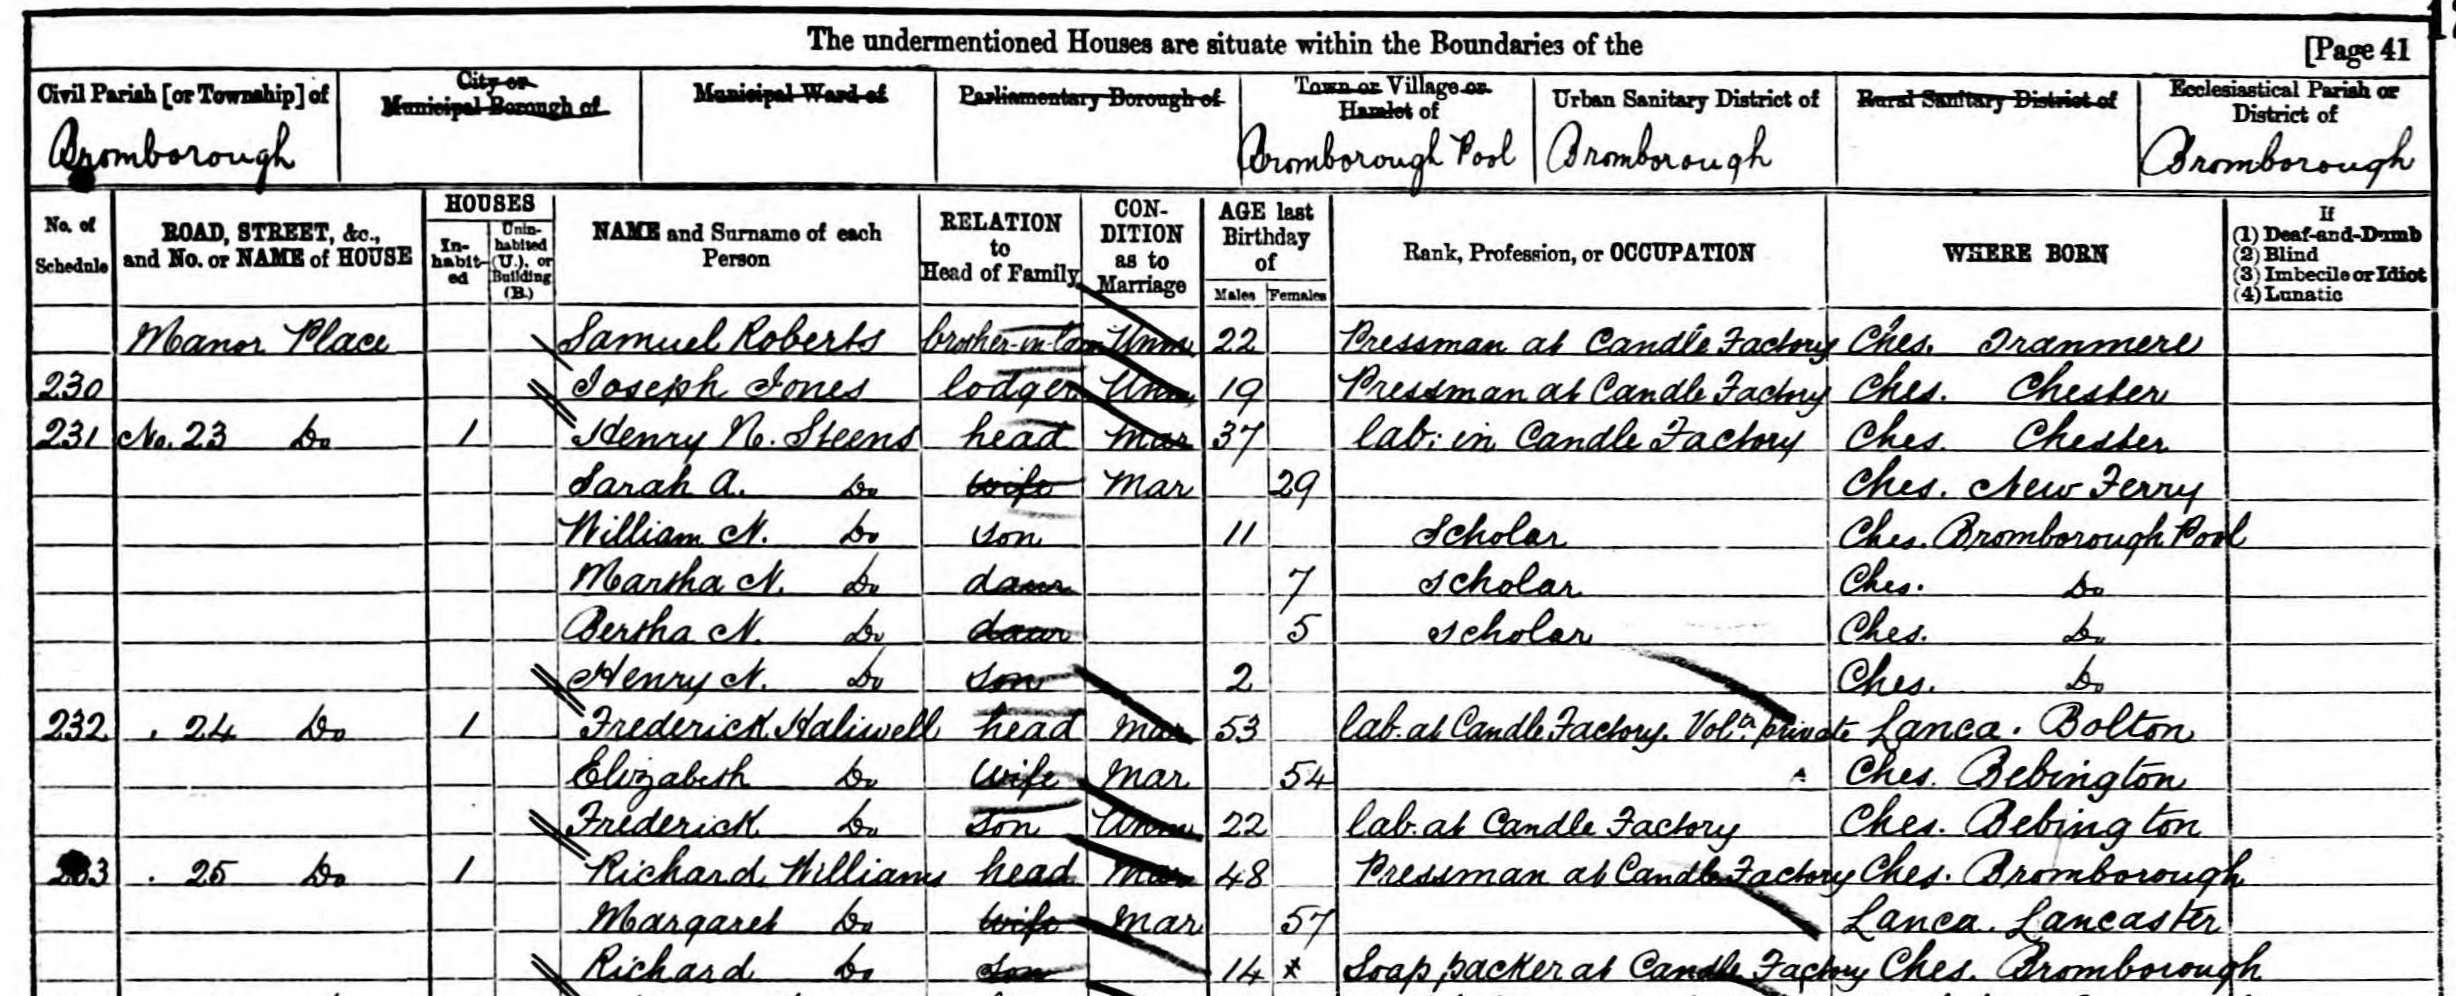 The undermentioned Houses are situate within the Boundaries of the [Page 41
Civil Parish [or Township] of City or Municipal Borough of Municipal Ward of Parliamentary Borough of Town or Village or Hamlet of Urban Sanitary District of Rural Sanitary District of Ecclesiastical Parish or District of
Bromborough Bromborough Pool Bromborough Bromborough
No. of Schedule ROAD, STREET, &c., and No. or NAME of HOUSE HOUSES In-habit-ed Unin-habited (U.), or Building (B.) NAME and Surname of each Person RELATION to Head of Family CON-DITION as to Marriage AGE last Birthday of Males Females Rank, Profession, or OCCUPATION WHERE BORN If (1) Deaf-and-Dumb (2) Blind (3) Imbecile or Idiot (4) Lunatic
Manor Place Samuel Roberts brother-in-law Unm 22 Pressman at Candle Factory Ches. Tranmere
230 Joseph Jones lodger Unm 19 Pressman at Candle Factory Ches. Chester
231 No. 23 Do 1 Henry N. Steens head Mar 37 lab: in Candle Factory Ches. Chester
Sarah A. Do wife Mar 29 Ches. New Ferry
William N. Do son 11 Scholar Ches. Bromborough Pool
Martha N. Do daur 7 Scholar Ches. Do
Bertha N. Do daur 5 Scholar Ches. Do
Henry N. Do son 2 Ches. Do
232 . 24 Do 1 Frederick Haliwell head Mar 53 lab. at Candle Factory. Voltr. private Lanca. Bolton
Elizabeth Do wife Mar 54 Ches. Bebington
Frederick Do son Unm 22 lab. at Candle Factory Ches. Bebington
233 . 25 Do 1 Richard Williams head Mar 48 Pressman at Candle Factory Ches. Bromborough
Margaret Do wife Mar 57 Lanca. Lancaster
Richard Do son 14 * Soap packer at Candle Factory Ches. Bromborough